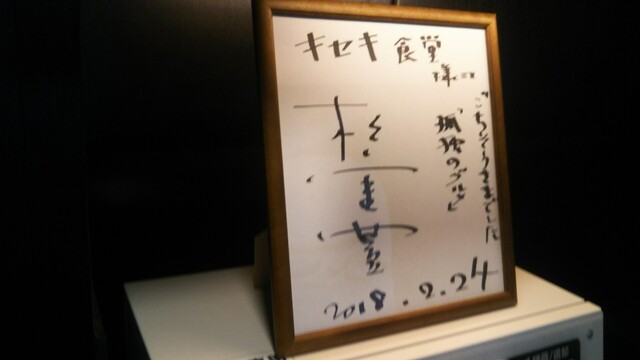 キセキ食堂
様江
ごちそうさまでした
孤独のグルメ
松重豊
2018.2.24